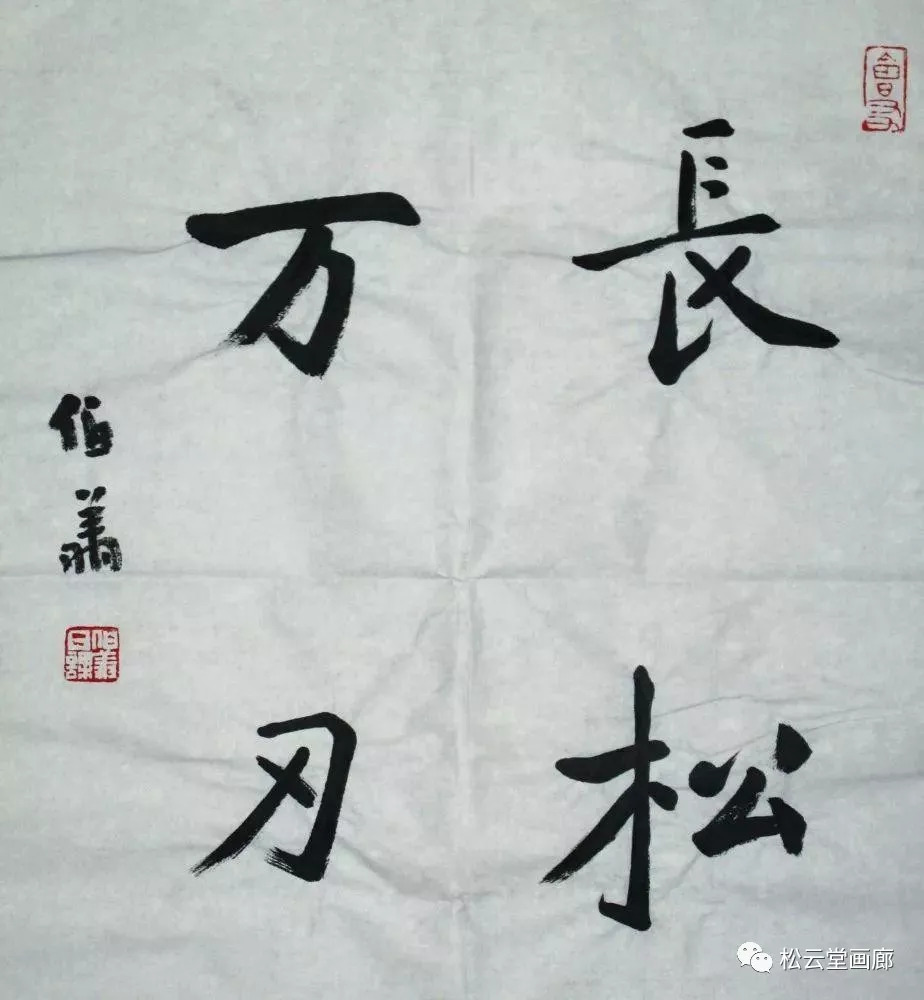 長松
万刃
伯
松云堂画廊